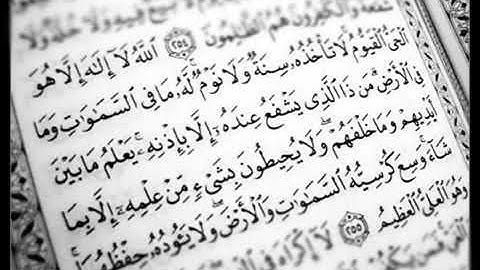 فِيهِ وَلَا خُلَّةٌ وَلَا
شَفَٰعَةٌ وَٱلْكَٰفِرُونَ هُمُ ٱلظَّٰلِمُونَ ٢٥٤ ٱللَّهُ لَآ إِلَٰهَ إِلَّا هُوَ
ٱلْحَىُّ ٱلْقَيُّومُ لَا تَأْخُذُهُۥ سِنَةٌ وَلَا نَوْمٌ لَّهُۥ مَا فِى ٱلسَّمَٰوَٰتِ وَمَا
فِى ٱلْأَرْضِ مَن ذَا ٱلَّذِى يَشْفَعُ عِندَهُۥٓ إِلَّا بِإِذْنِهِۦ يَعْلَمُ مَا بَيْنَ
أَيْدِيهِمْ وَمَا خَلْفَهُمْ وَلَا يُحِيطُونَ بِشَىْءٍ مِّنْ عِلْمِهِۦٓ إِلَّا بِمَا
شَآءَ وَسِعَ كُرْسِيُّهُ ٱلسَّمَٰوَٰتِ وَٱلْأَرْضَ وَلَا يَـُٔودُهُۥ حِفْظُهُمَا
وَهُوَ ٱلْعَلِىُّ ٱلْعَظِيمُ ٢٥٥ لَآ إِكْرَاهَ فِى